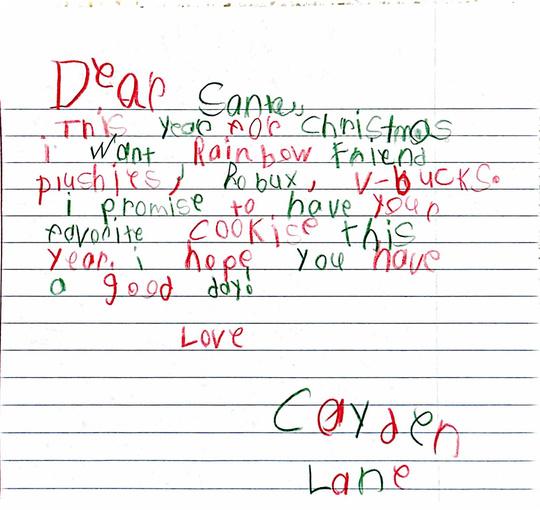 Dear Santa,,
This year for Christmas
i want Rainbow Friend
plushies, Robux, V-bucks.
i promise to have your
favorite cookise this
year. i hope you have
a good day!
Love
Cayden
Lane